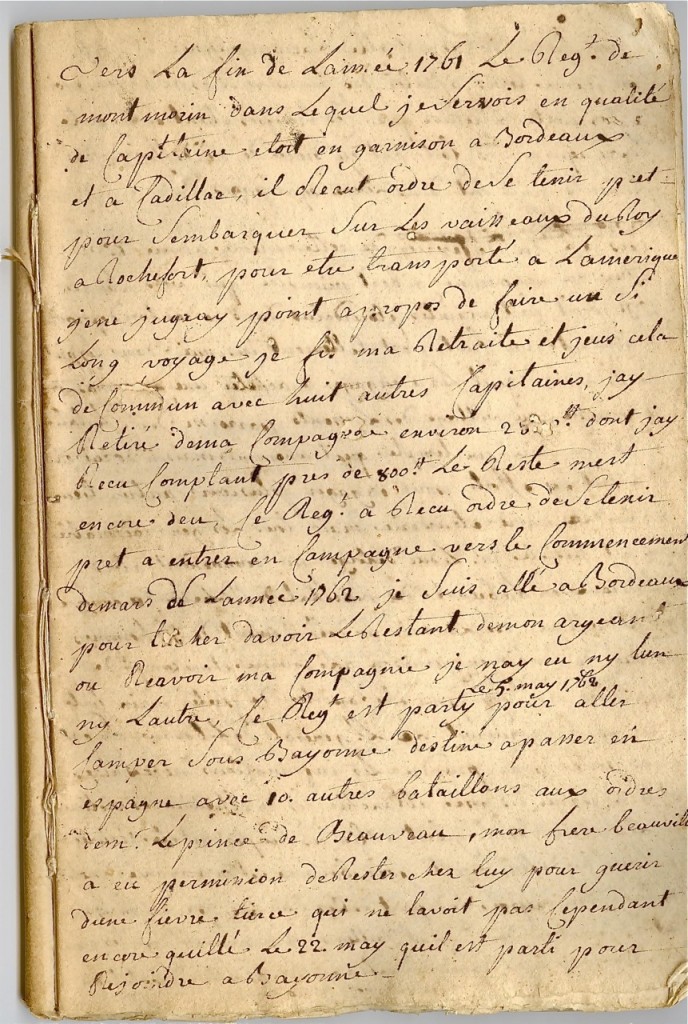 Vers La fin de Lanneé 1761 Le Reg.t de
montmorin dans Lequel je Servois en qualité
de Capitaine etoit en garnison a Bordeaux
et a Cadillac, il Recut ordre de Se tenir pret
pour Sembarquer Sur Les vaisseaux du Roy
a Rochefort, pour etre transporté a Lamerique
je ne jugeay point apropos de faire un Si
Long voyage je fis ma Retraite et jeus cela
de Commun avec huit autres Capitaines, jay
Retiré de ma Compagnie environ dont jay
Recu Comptant pres de 800tt Le Reste mest
encore deu, Ce Reg.t a Recu ordre de Se tenir
pret a entrer en Campagne vers le Commencemen
de mars de Lanneé 1762 je Suis allé a Bordeaux
pour tacher davoir Le Restant de mon argeant
ou Reavoir ma Compagnie je nay eu ny lun
ny Lautre, Ce Reg.t est party pour aller
Le 5. may 1762
Camper Sous Bayonne destiné a passer en
espagne avec 10. autres bataillons aux ordres
de m.r Le prince de Beauveau, mon frere beauville
a eu permission de Rester chez luy pour guerir
dune fievre tierce qui ne lavoit pas Cependant
encore quitté Le 22. may quil est parti pour
Rejoindre a Bayonne